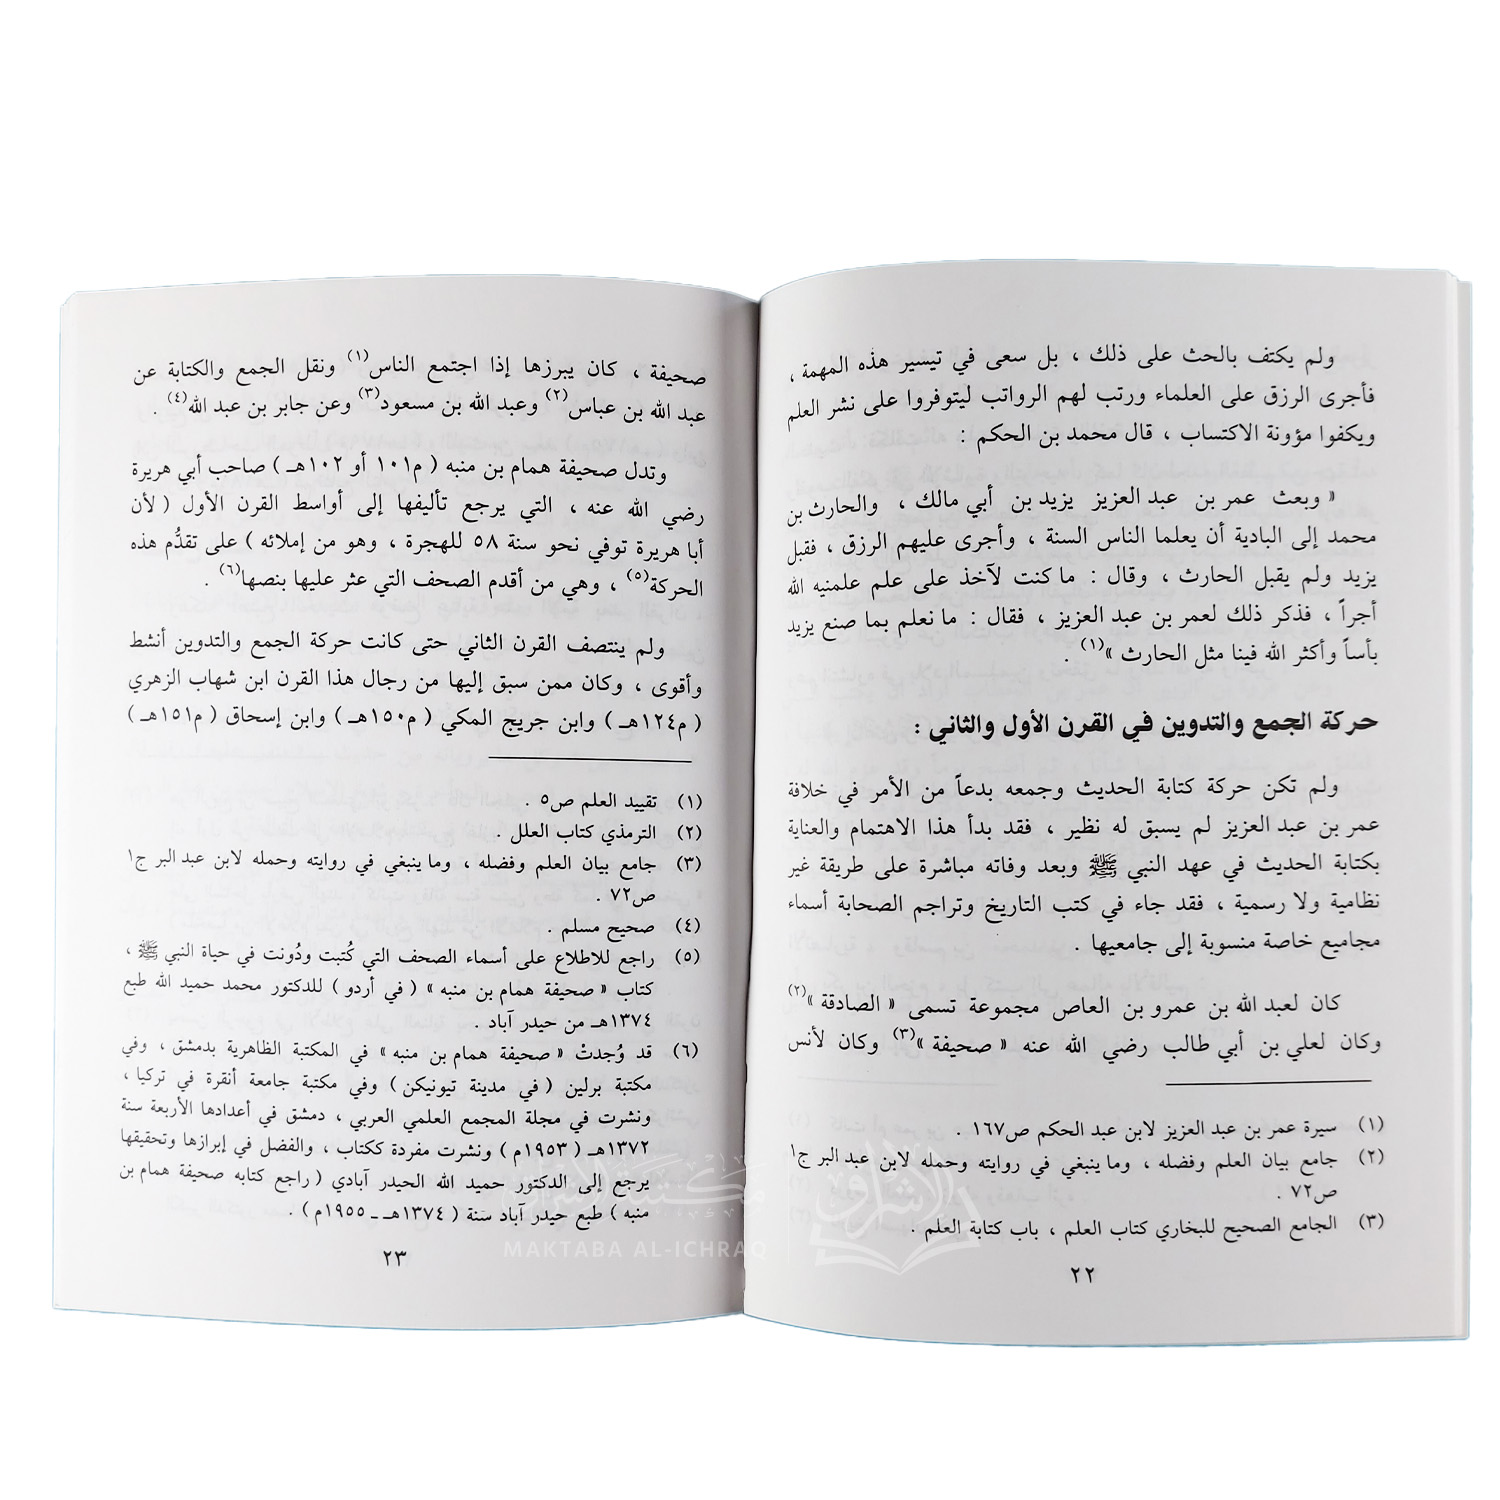 ولم يكتف بالحث على ذلك ، بل سعى في تيسير هذه المهمة ،
فأجرى الرزق على العلماء ورتب لهم الرواتب ليتوفروا على نشر العلم
ويكفوا مؤونة الاكتساب ، قال محمد بن الحكم :
« وبعث عمر بن عبد العزيز يزيد بن أبي مالك ، والحارث بن
محمد إلى البادية أن يعلما الناس السنة ، وأجرى عليهم الرزق ، فقبل
يزيد ولم يقبل الحارث ، وقال : ما كنت لآخذ على علم علمنيه الله
أجراً ، فذكر ذلك لعمر بن عبد العزيز ، فقال : ما نعلم بما صنع يزيد
بأساً وأكثر الله فينا مثل الحارث »(١) .
حركة الجمع والتدوين في القرن الأول والثاني :
ولم تكن حركة كتابة الحديث وجمعه بدعاً من الأمر في خلافة
عمر بن عبد العزيز لم يسبق له نظير ، فقد بدأ هذا الاهتمام والعناية
بكتابة الحديث في عهد النبي ﷺ وبعد وفاته مباشرة على طريقة غير
نظامية ولا رسمية ، فقد جاء في كتب التاريخ وتراجم الصحابة أسماء
مجاميع خاصة منسوبة إلى جامعيها .
كان لعبد الله بن عمرو بن العاص مجموعة تسمى « الصادقة »(٢)
وكان لعلي بن أبي طالب رضي الله عنه « صحيفة »(٣) وكان لأنس
(١) سيرة عمر بن عبد العزيز لابن عبد الحكم ص١٦٧ .
(٢) جامع بيان العلم وفضله ، وما ينبغي في روايته وحمله لابن عبد البر ج١
ص٧٢ .
(٣) الجامع الصحيح للبخاري كتاب العلم ، باب كتابة العلم .
٢٢
صحيفة ، كان يبرزها إذا اجتمع الناس(١) ونقل الجمع والكتابة عن
عبد الله بن عباس(٢) وعبد الله بن مسعود(٣) وعن جابر بن عبد الله(٤) .
وتدل صحيفة همام بن منبه ( م١٠١ أو ١٠٢هـ ) صاحب أبي هريرة
رضي الله عنه ، التي يرجع تأليفها إلى أواسط القرن الأول ( لأن
أبا هريرة توفي نحو سنة ٥٨ للهجرة ، وهو من إملائه ) على تقدُّم هذه
الحركة(٥) ، وهي من أقدم الصحف التي عثر عليها بنصها(٦) .
ولم ينتصف القرن الثاني حتى كانت حركة الجمع والتدوين أنشط
وأقوى ، وكان ممن سبق إليها من رجال هذا القرن ابن شهاب الزهري
( م١٢٤هـ ) وابن جريج المكي ( م١٥٠هـ ) وابن إسحاق ( م١٥١هـ )
(١) تقييد العلم ص٥ .
(٢) الترمذي كتاب العلل .
(٣) جامع بيان العلم وفضله ، وما ينبغي في روايته وحمله لابن عبد البر ج١
ص٧٢ .
(٤) صحيح مسلم .
(٥) راجع للاطلاع على أسماء الصحف التي كُتبت ودُونت في حياة النبي ﷺ ،
كتاب « صحيفة همام بن منبه » ( في أردو ) للدكتور محمد حميد الله طبع
١٣٧٤هـ من حيدر آباد .
(٦) قد وُجدتْ « صحيفة همام بن منبه » في المكتبة الظاهرية بدمشق ، وفي
مكتبة برلين ( في مدينة تيونيكن ) وفي مكتبة جامعة أنقرة في تركيا ،
ونشرت في مجلة المجمع العلمي العربي ، دمشق في أعدادها الأربعة سنة
١٣٧٢هـ ( ١٩٥٣م ) ونشرت مفردة ككتاب ، والفضل في إبرازها وتحقيقها
يرجع إلى الدكتور حميد الله الحيدر آبادي ( راجع كتابه صحيفة همام بن
منبه ) طبع حيدر آباد سنة ( ١٣٧٤هـ ــ ١٩٥٥م ) .
٢٣
مكتبة الإشراق
MAKTABA AL-ICHRAQ
الإشراق